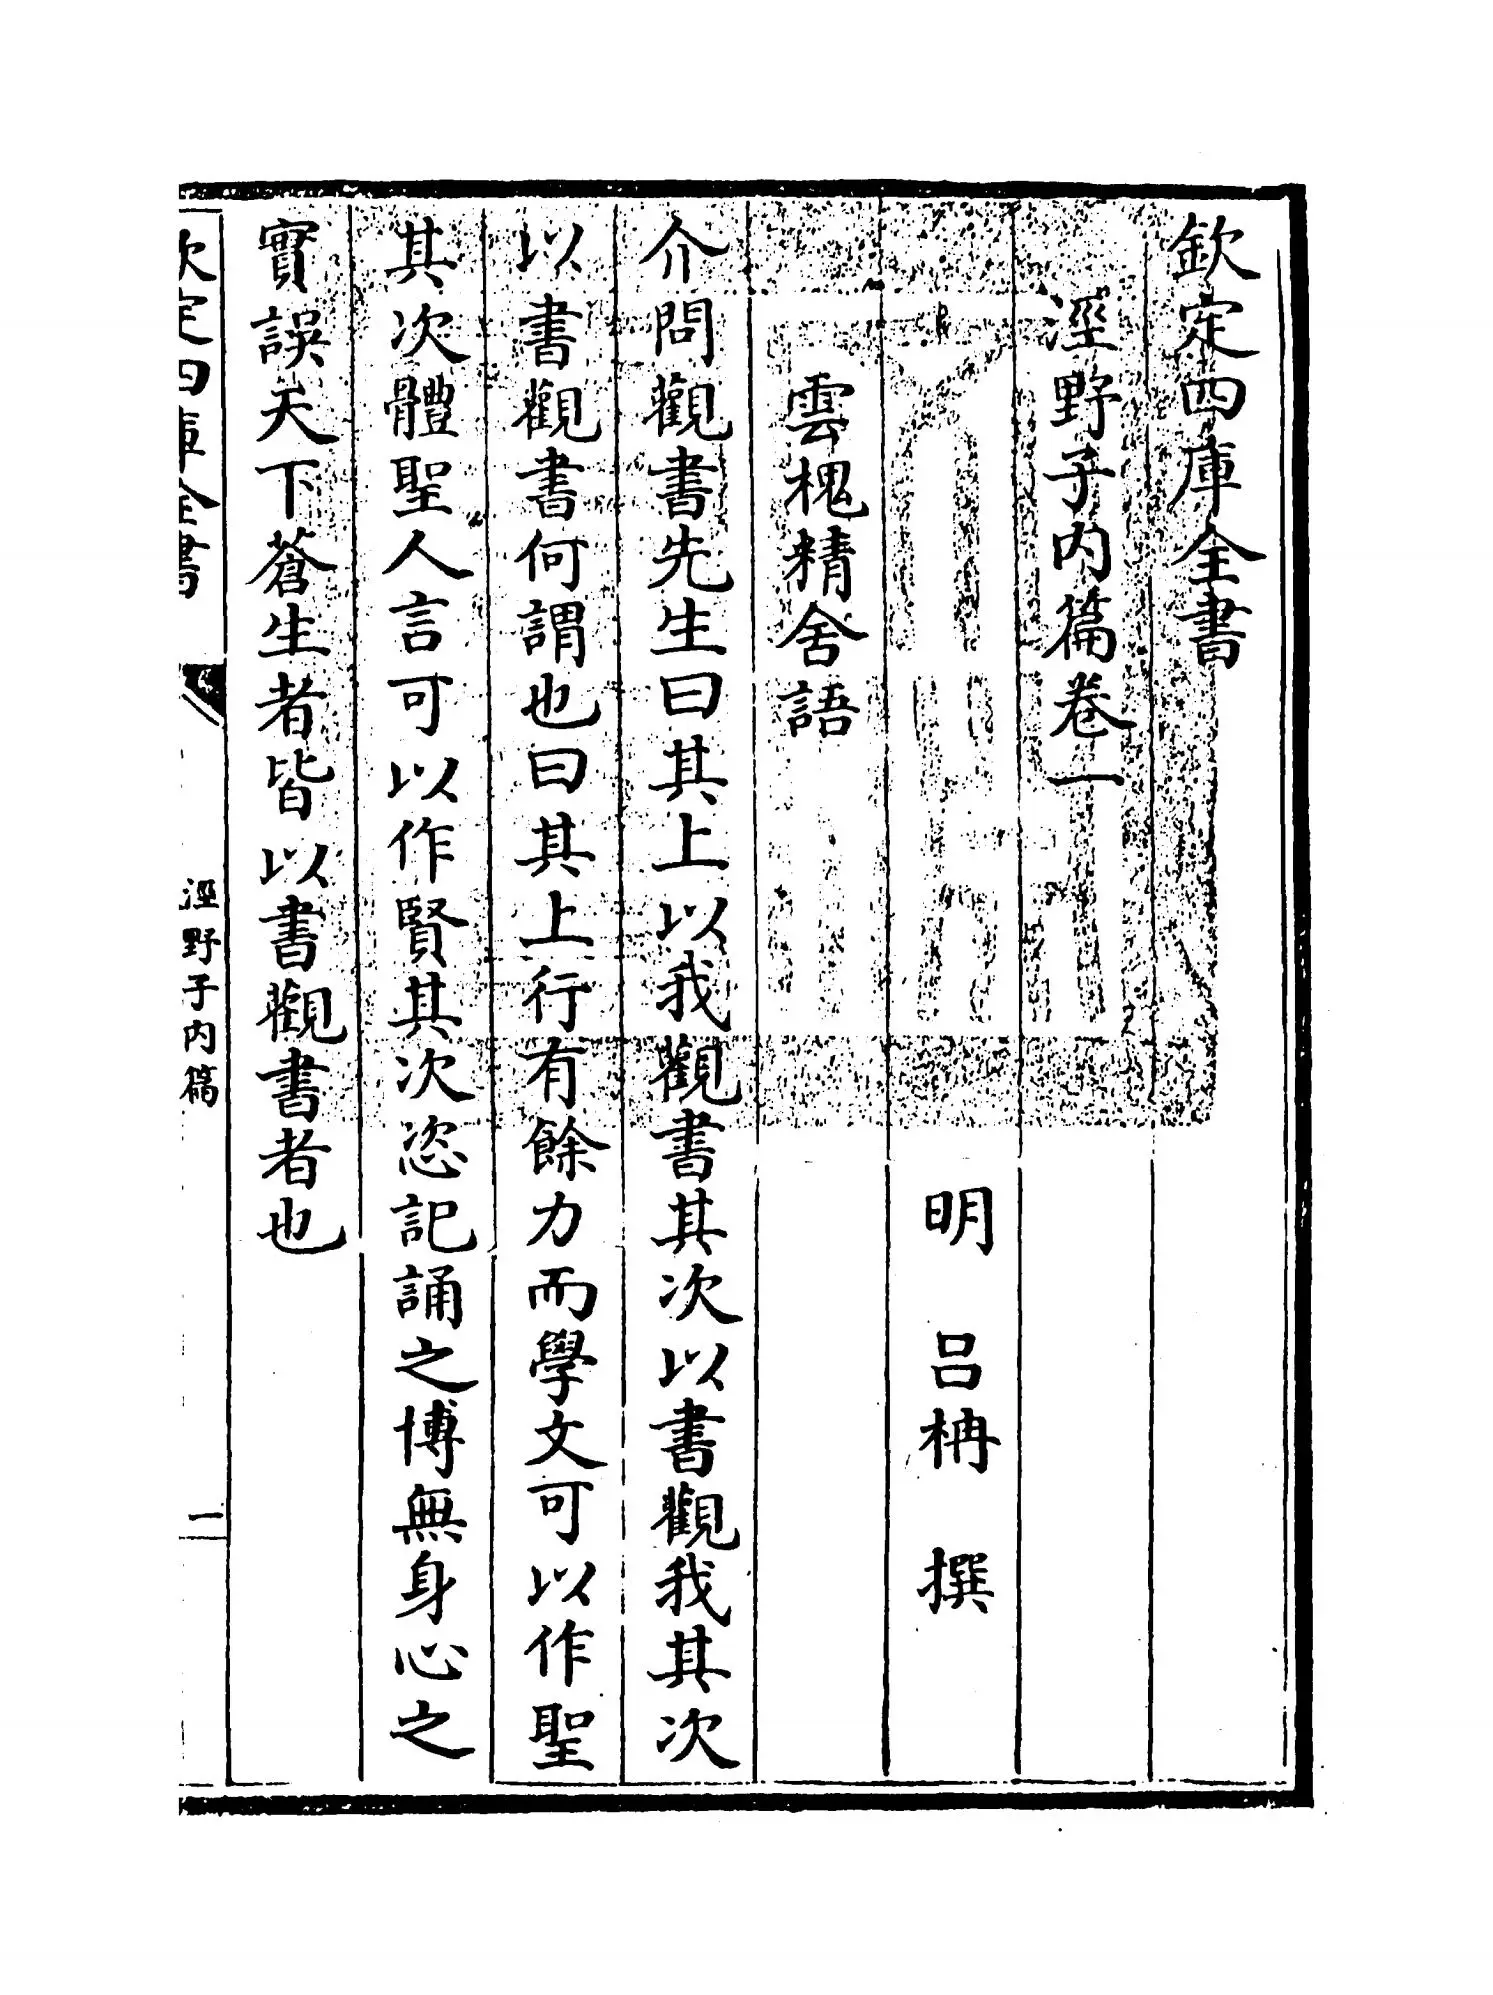 欽定四庫全書
涇野子内篇卷一
明 呂柟 撰
雲槐精舍語
介問觀書先生曰其上以我觀書其次以書觀我其次
以書觀書何謂也曰其上行有餘力而學文可以作聖
其次體聖人言可以作賢其次恣記誦之博無身心之
實誤天下蒼生者皆以書觀書者也
欽定四庫全書
涇野子内篇
一